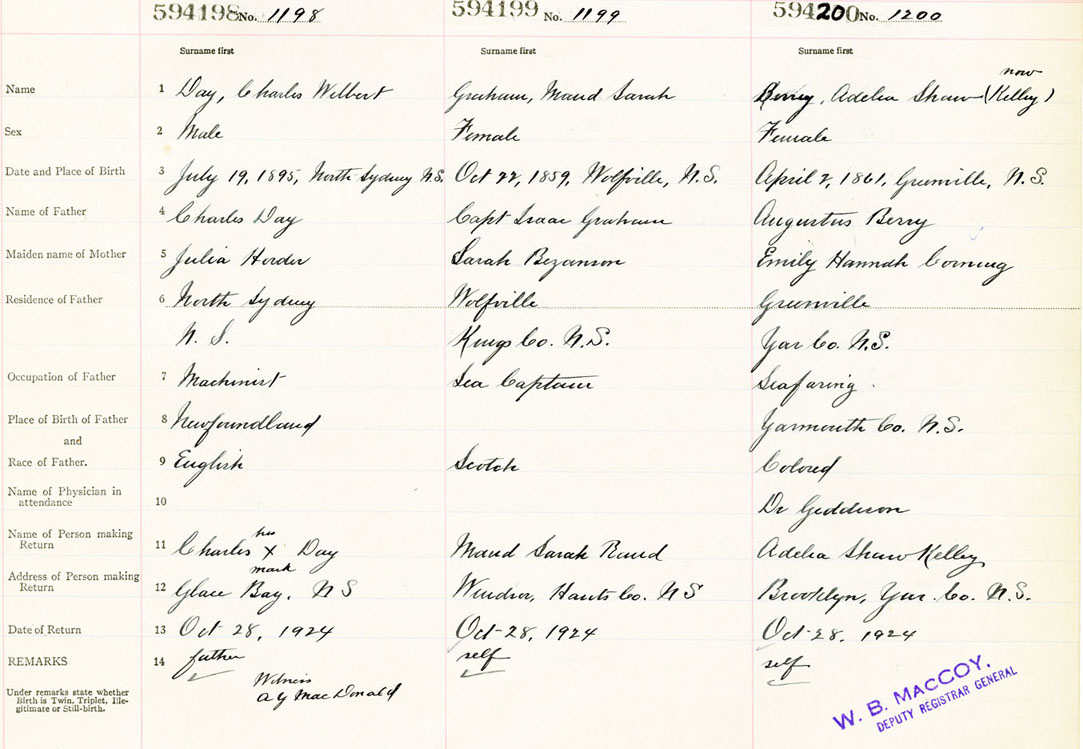 594198 No. 1198 594199 No. 1199 594200 No. 1200
Surname first Surname first Surname first
now
Name 1 Day, Charles Wilbert Graham, Maud Sarah Berry, Adelia Shaw (Kelley)
Sex 2 Male Female Female
Date and Place of Birth 3 July 19, 1895, North Sydney N.S. Oct 22, 1859, Wolfville, N.S. April 2, 1861, Greenville, N.S.
Name of Father 4 Charles Day Capt Isaac Graham Augustus Berry
Maiden name of Mother 5 Julia Horder Sarah Bezanson Emily Hannah Corning
Residence of Father 6 North Sydney Wolfville Greenville
N. S. Kings Co. N.S. Yar Co. N.S.
Occupation of Father 7 Machinist Sea Captain Seafaring.
Place of Birth of Father 8 Newfoundland Yarmouth Co. N.S.
and
Race of Father. 9 English Scotch Colored
Name of Physician in
attendance 10 Dr Geddison
Name of Person making
Return 11 Charles his X mark Day Maud Sarah Rand Adelia Shaw Kelley
Address of Person making
Return 12 Glace Bay, N S Windsor, Hants Co. N S Brooklyn, Yar. Co. N.S.
Date of Return 13 Oct 28, 1924 Oct-28, 1924 Oct-28, 1924
REMARKS 14 father self self
Under remarks state whether
Birth is Twin, Triplet, Ille-
gitimate or Still-birth.
Witness
A Y MacDonald
W. B. MacCOY,
DEPUTY REGISTRAR GENERAL